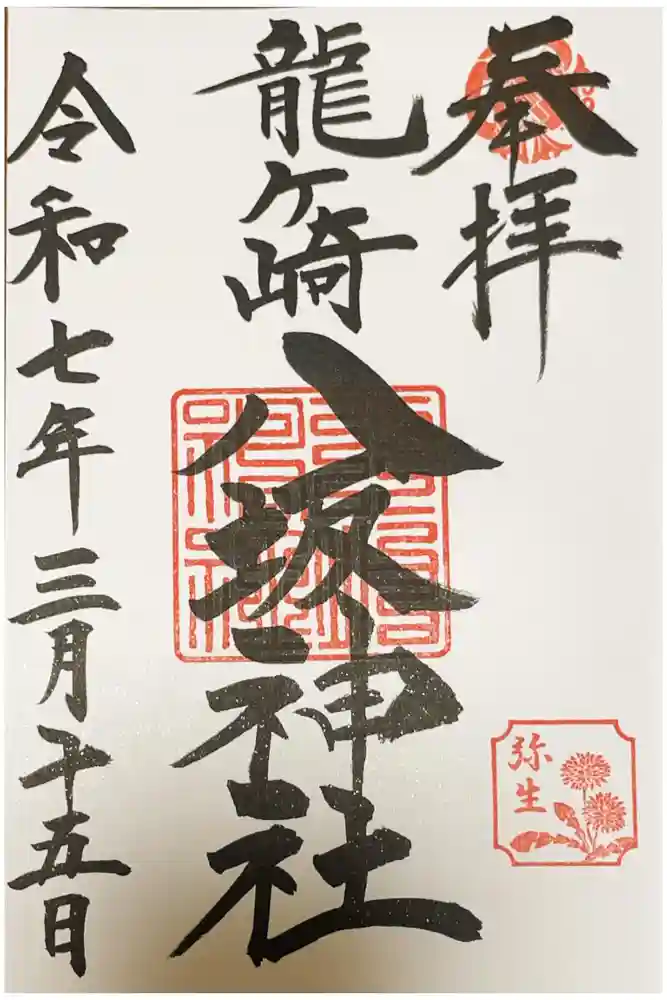 奉拝
龍ケ崎
八坂神社
令和七年三月十五日
弥生